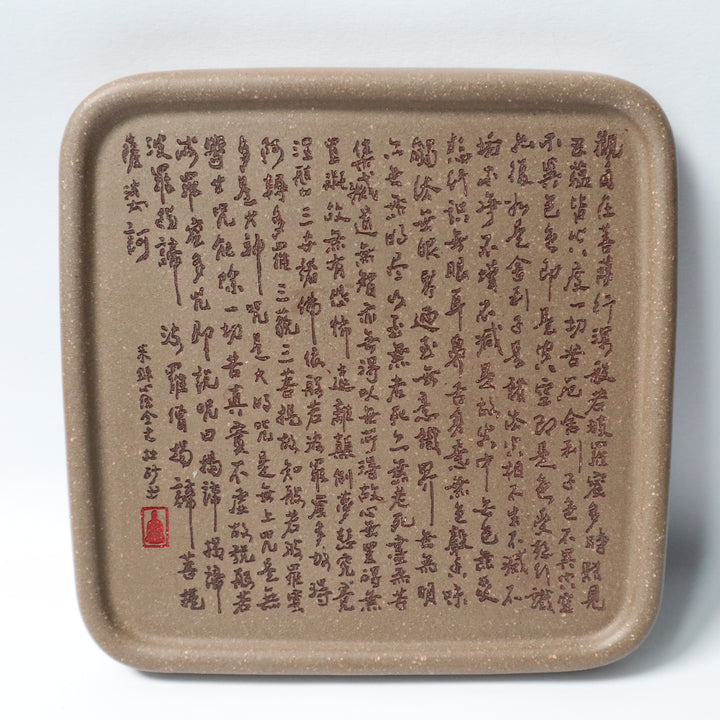 觀自在菩薩行深般若波羅蜜多時照見
五蘊皆空度一切苦厄舍利子色不異空空
不異色色即是空空即是色受想行識
亦復如是舍利子是諸法空相不生不滅不
垢不淨不增不減是故空中無色無受
想行識無眼耳鼻舌身意無色聲香味
觸法無眼界乃至無意識界無無明
亦無無明盡乃至無老死亦無老死盡無苦
集滅道無智亦無得以無所得故心無罣礙無
罣礙故無有恐怖遠離顛倒夢想究竟
涅槃三世諸佛依般若波羅蜜多故得
阿耨多羅三藐三菩提故知般若波羅蜜
多是大神咒是大明咒是無上咒是無
等等咒能除一切苦真實不虛故說般若
波羅蜜多咒即說咒曰揭諦揭諦
波羅揭諦波羅僧揭諦菩提
薩婆訶